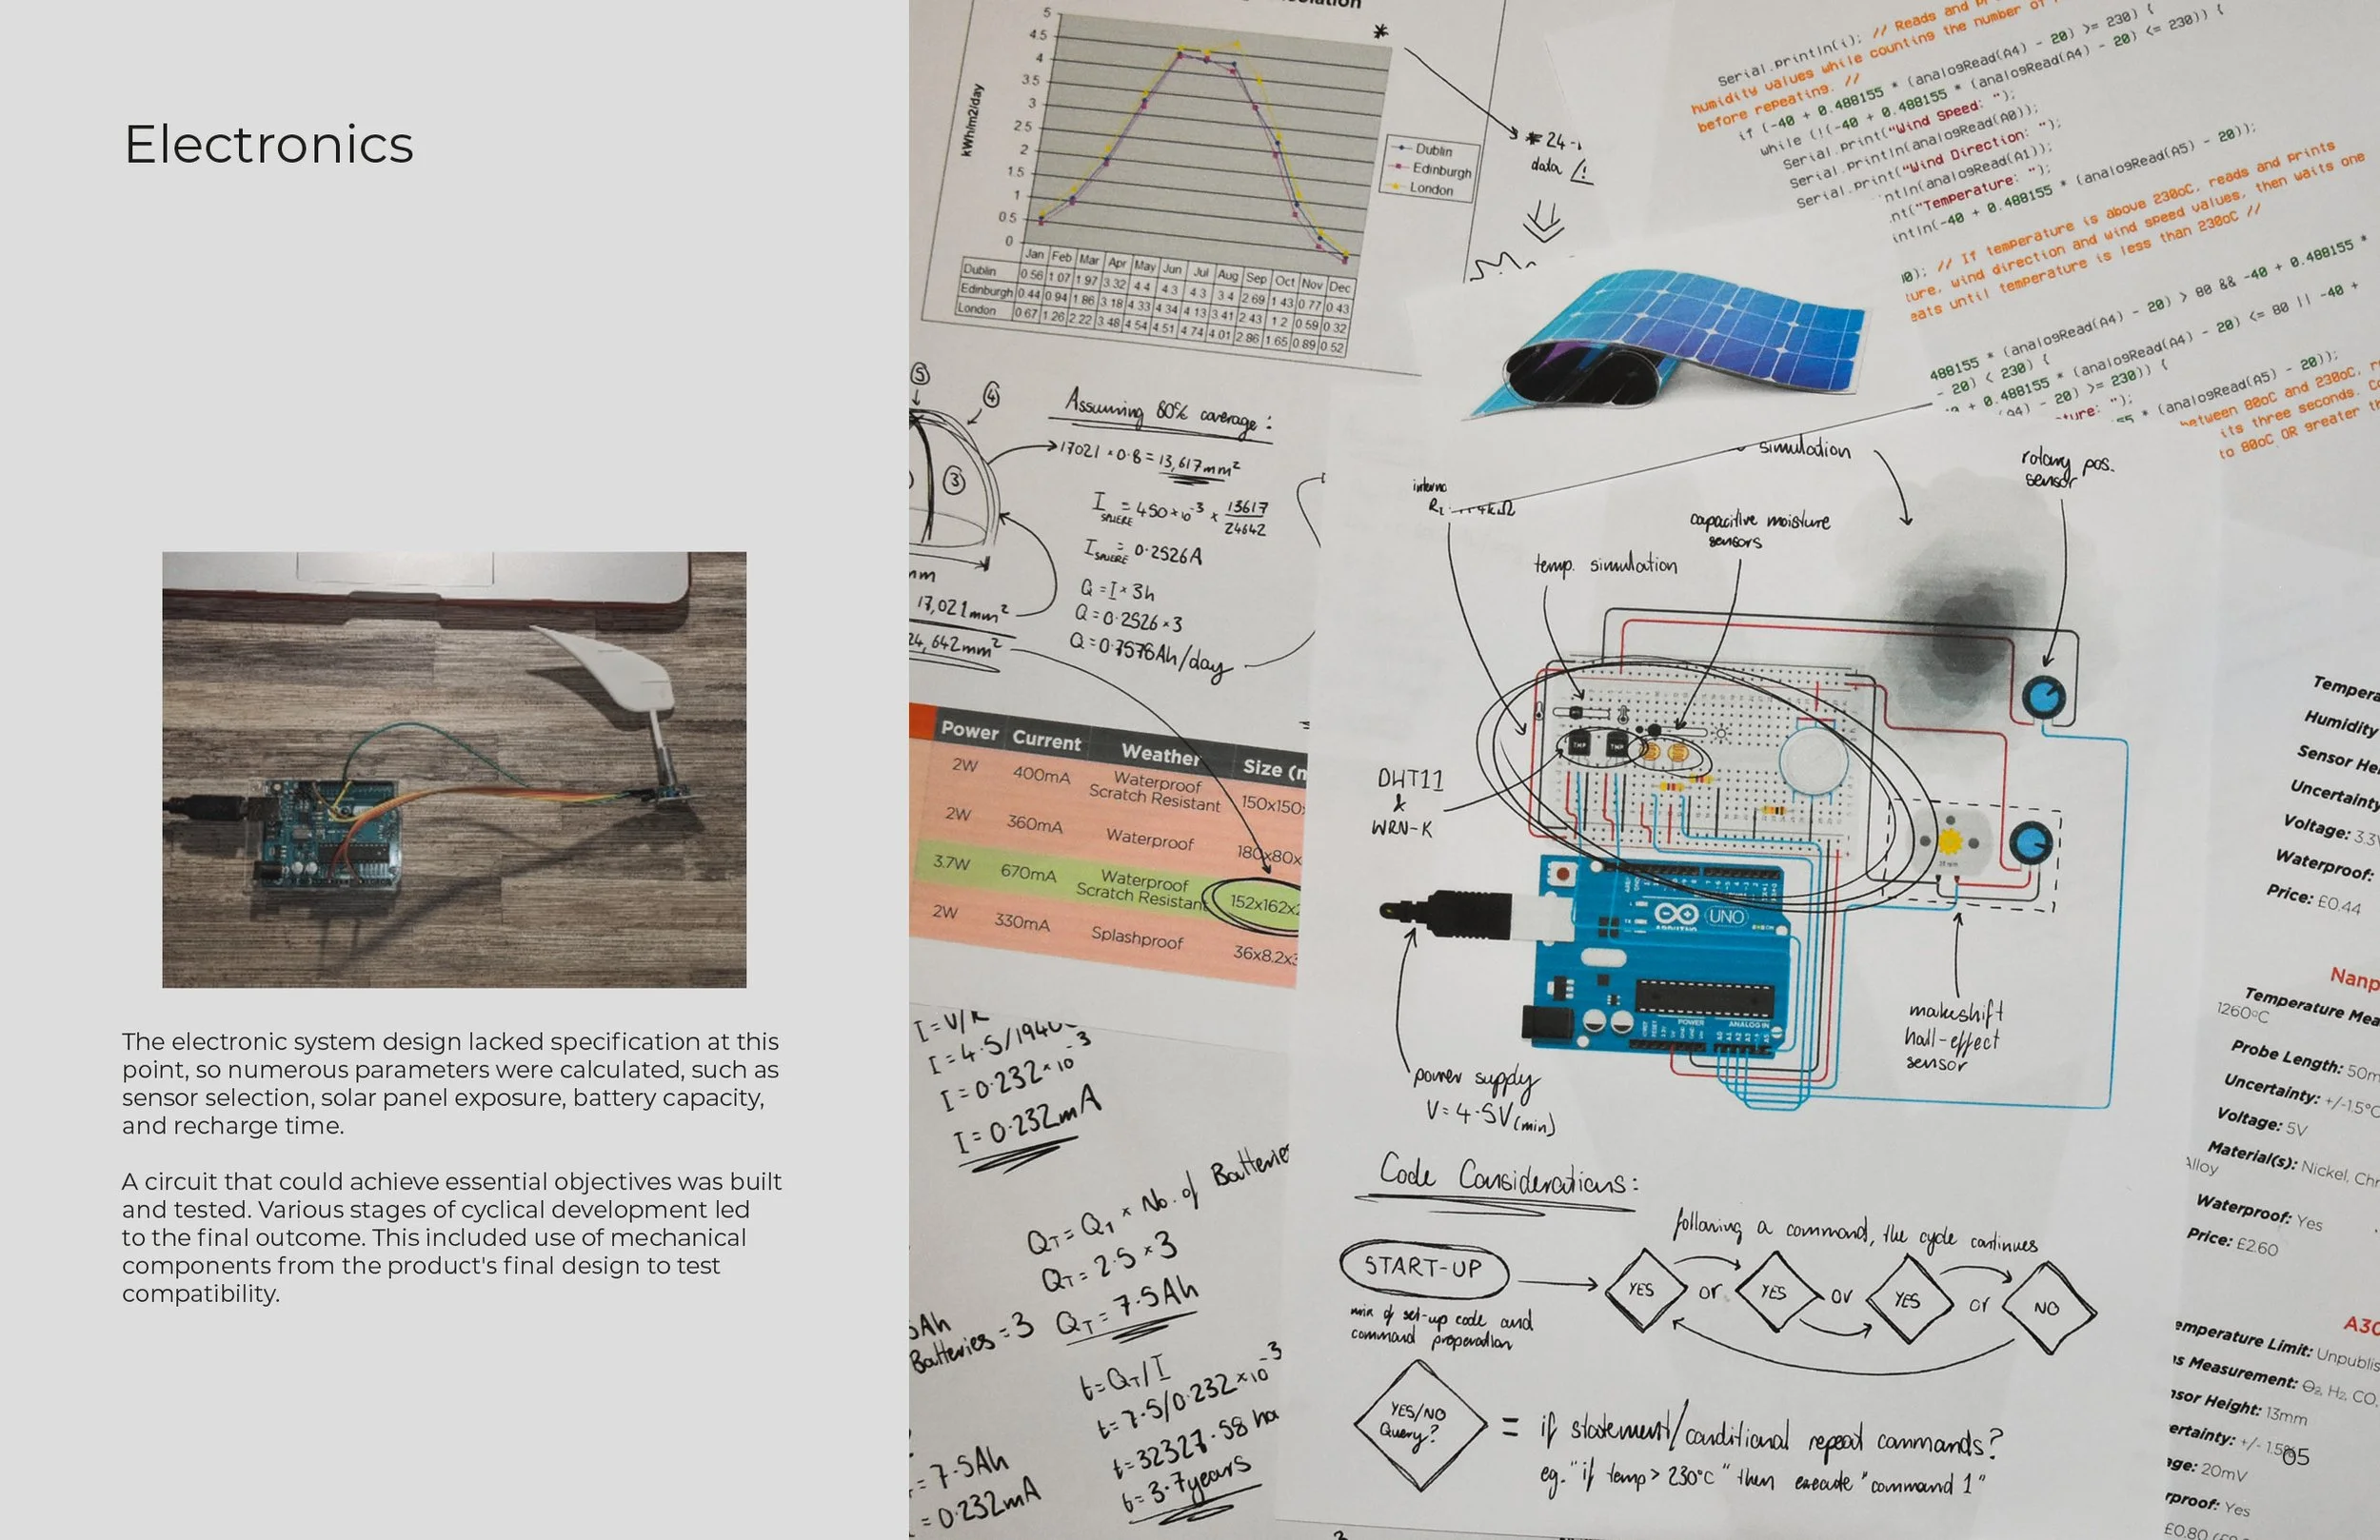 Electronics
The electronic system design lacked specification at this
point, so numerous parameters were calculated, such as
sensor selection, solar panel exposure, battery capacity,
and recharge time.
A circuit that could achieve essential objectives was built
and tested. Various stages of cyclical development led
to the final outcome. This included use of mechanical
components from the product's final design to test
compatibility.
5
4.5
4
3.5
3
2.5
2
1.5
1
0.5
0
kWh/m2/day
Dublin
Edinburgh
London
Jan Feb Mar Apr May Jun Jul Aug Sep Oct Nov Dec
Dublin 0.56 1.07 1.97 3.32 4.4 4.3 4.3 3.4 2.69 1.43 0.77 0.43
Edinburgh 0.44 0.94 1.86 3.18 4.33 4.34 4.13 3.41 2.43 1.2 0.59 0.32
London 0.67 1.26 2.22 3.48 4.54 4.51 4.74 4.01 2.86 1.65 0.89 0.52
*
* 24
data
Serial.println(i); // Reads and
humidity values while counting the number of
before repeating. //
if (-40 + 0.488155 * (analogRead(A4) - 20) >= 230) {
while (!(-40 + 0.488155 * (analogRead(A4) - 20) <= 230)) {
Serial.print("Wind Speed: ");
Serial.println(analogRead(A0));
Serial.print("Wind Direction: ");
ntln(analogRead(A1));
nt("Temperature: ");
intln(-40 + 0.488155 * (analogRead(A5) - 20));
0); // If temperature is above 230oC, reads and prints
ture, wind direction and wind speed values, then waits one
eats until temperature is less than 230oC //
488155 * (analogRead(A4) - 20) > 80 && -40 + 0.488155 *
- 20) < 230) {
+ 0.488155 * (analogRead(A4) - 20) <= 80 || -40 +
(A4) - 20) >= 230)) {
ture: ");
* (analogRead(A5) - 20));
between 80oC and 230oC, r
its three seconds. Co
to 80oC OR greater th
5
4
3
Assuming 80% coverage:
17021 × 0.8 = 13,617mm²
I SPHERE = 450×10⁻³ × 13617/24642
I SPHERE = 0.2526A
Q = I × 3h
Q = 0.2526 × 3
Q = 0.7578Ah/day
mm
17,021mm²
24,642mm²
Power Current Weather Size (m
2W 400mA Waterproof Scratch Resistant 150x150
2W 360mA Waterproof 180x80x
3.7W 670mA Waterproof Scratch Resistant 152x162x2
2W 330mA Splashproof 36x8.2x3
I = V/R
I = 4.5/1940
I = 0.232×10⁻³
I = 0.232mA
QT = Q1 × No. of Batteries
QT = 2.5 × 3
QT = 7.5Ah
5Ah
Batteries = 3
t = QT/I
t = 7.5/0.232×10⁻³
t = 32327.58 ho
t = 3.7years
= 7.5Ah
= 0.232mA
simulation
rotary pos.
sensor
capacitive moisture
sensors
temp. simulation
TMP
TMP
DHT11
&
WRN-K
ARDUINO
UNO
POWER
ANALOG IN
power supply
V = 4.5V (min)
makeshift
hall-effect
sensor
Code Considerations:
following a command, the cycle continues
START-UP
YES or YES or YES or NO
mix of set-up code and
command preparation
YES/NO
Query?
= if statement/conditional repeat commands?
eg. "if temp > 230°C" then execute "command 1"
Tempera
Humidity
Sensor Hei
Uncertainty
Voltage: 3.3V
Waterproof:
Price: £0.44
Nanp
Temperature Mea
1260°C
Probe Length: 50m
Uncertainty: +/-1.5°C
Voltage: 5V
Material(s): Nickel, Chr
Alloy
Waterproof: Yes
Price: £2.60
A30
emperature Limit: Unpublis
as Measurement: O₂, H₂, CO,
nsor Height: 13mm
ertainty: +/- 1.5%
age: 20mV
rproof: Yes
£0.80
05